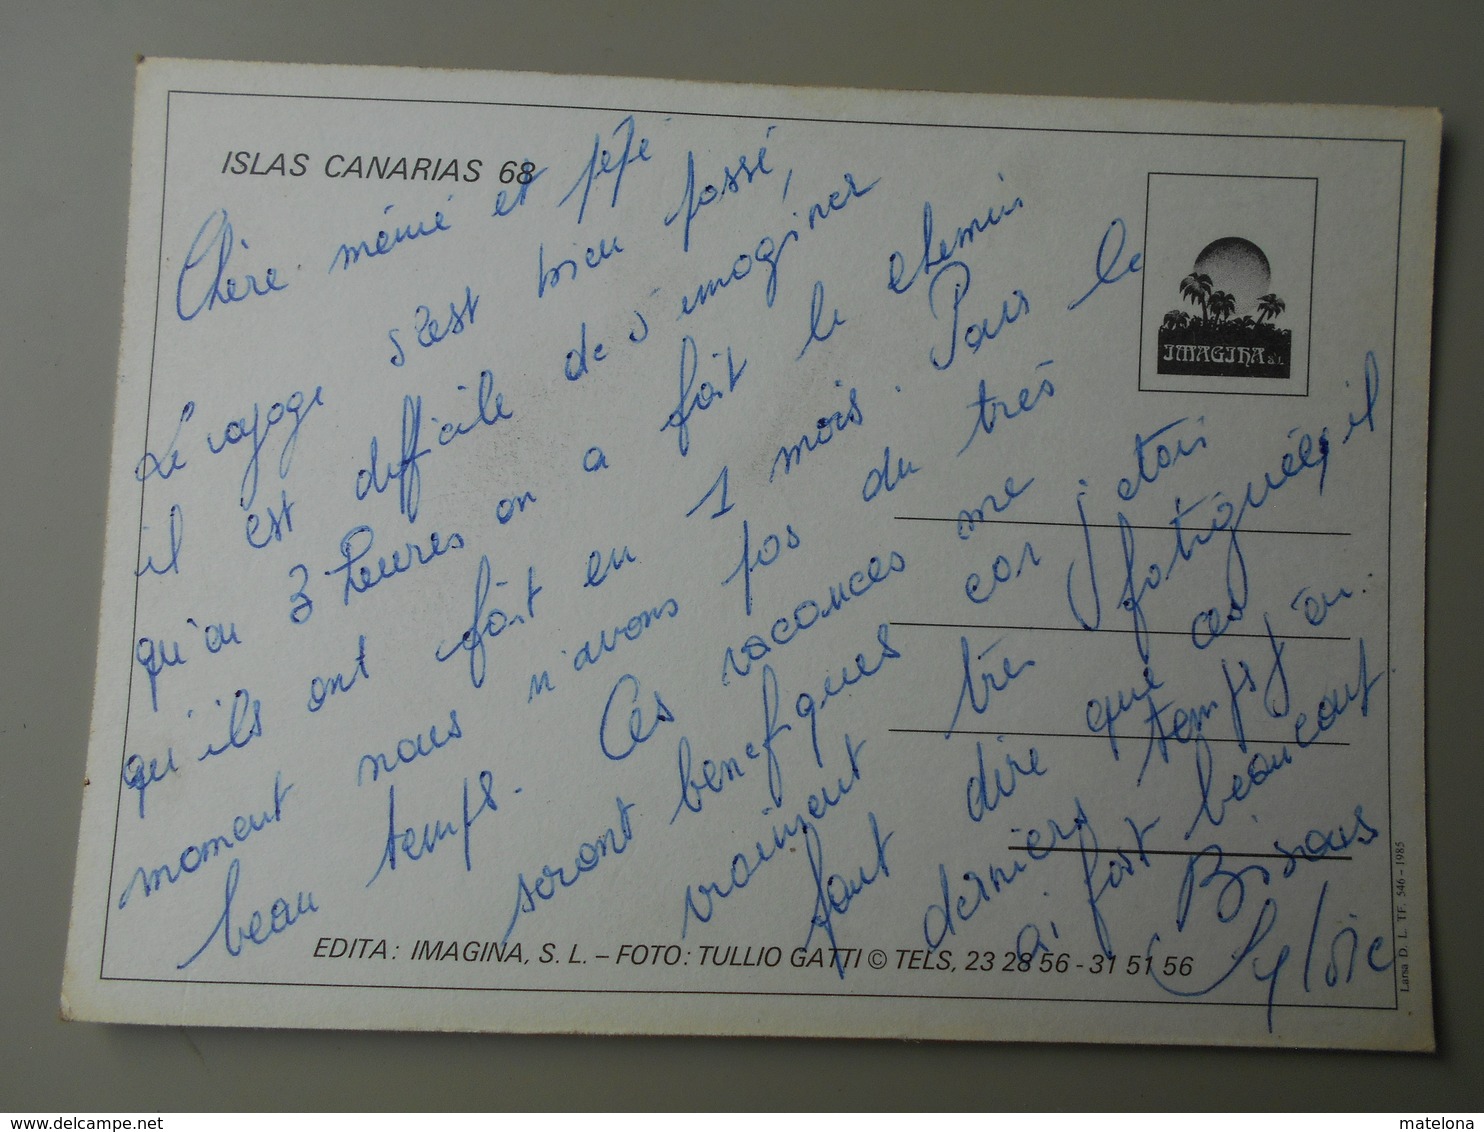 ISLAS CANARIAS 68
Chère mémé et pépé
Le voyage s'est bien passé,
il est difficile de s'imaginer
qu'en 3 heures on a fait le chemin
qu'ils ont fait en 1 mois. Pour le
moment nous n'avons pas du très
beau temps. Ces vacances me
seront benefiques car j'etais
vraiment très fatiguée, il
faut dire que ces
derniers temps j'en
ai fait beaucoup.
Bisous
Sylvie
IMAGINA S.L.
EDITA: IMAGINA, S. L. – FOTO: TULLIO GATTI © TELS, 23 28 56 - 31 51 56
Larsa D. L. TF. 546 - 1985
www.delcampe.net
matelona